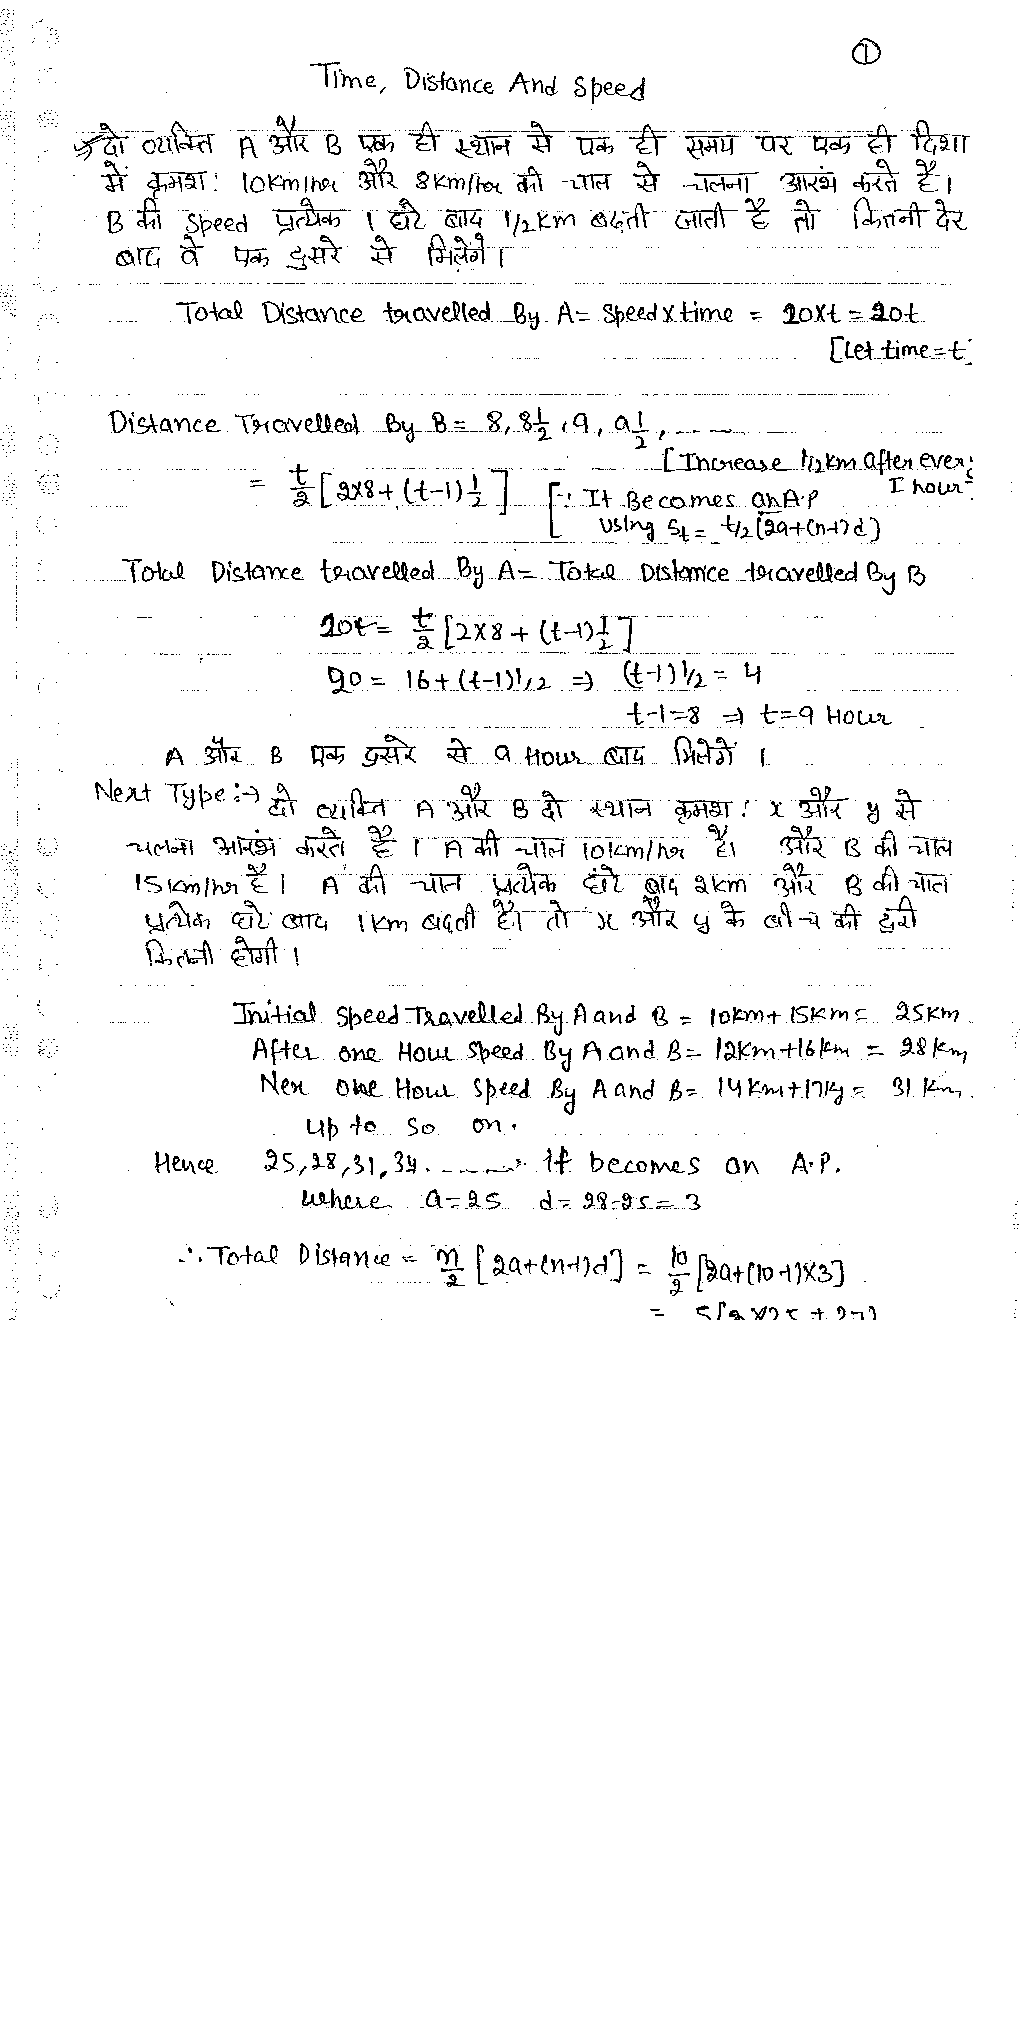 ①
Time, Distance And Speed
दो व्यक्ति A और B एक ही स्थान से एक ही समय पर एक ही दिशा
में क्रमश: 10km/hr और 8km/hr की चाल से चलना आरंभ करते है।
B की Speed प्रत्येक 1 घंटे बाद 1/2km बढ़ती जाती है तो कितनी देर
बाद वे एक दुसरे से मिलेगें।
Total Distance travelled By A = Speed x time = 10xt = 10t
[Let time = t]
Distance Travelled By B = 8, 8½, 9, 9½, ----
[Increase 1/2km after every
1 hour]
= t/2 [2x8+(t-1)½] [∵ It Becomes an A.P
Using St = t/2 (2a+(n-1)d)
Total Distance travelled By A = Total Distance travelled By B
10t = t/2 [2x8 + (t-1)½]
20 = 16+(t-1)1/2 ⇒ (t-1)1/2 = 4
t-1=8 ⇒ t=9 Hour
A और B एक दुसरे से 9 Hour बाद मिलेगें।
Next Type:→ दो व्यक्ति A और B दो स्थान क्रमश: x और y से
चलना आरंभ करते है। A की चाल 10km/hr है। और B की चाल
15km/hr है। A की चाल प्रत्येक घंटे बाद 2km और B की चाल
प्रत्येक घंटे बाद 1km बढ़ती है। तो x और y के बीच की दुरी
कितनी होगी।
Initial Speed Travelled By A and B = 10km+15km= 25km
After one Hour Speed By A and B = 12km+16km = 28km
Nex one Hour Speed By A and B = 14km+17kg = 31 km.
Up to so on.
Hence 25,28,31,34.----. It becomes an A.P.
where a=25 d=28-25=3
∴ Total Distance = n/2 [2a+(n-1)d] = 10/2 [2a+(10-1)x3]